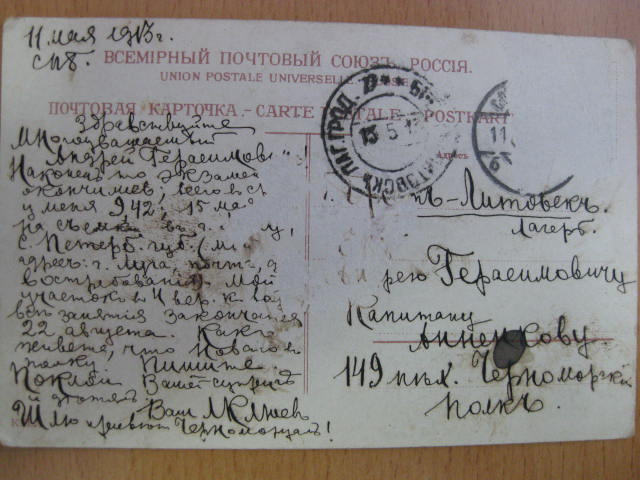 11 мая 1913 г.
СПб.
ВСЕМІРНЫЙ ПОЧТОВЫЙ СОЮЗЪ. РОССІЯ.
UNION POSTALE UNIVERSELLE
ПОЧТОВАЯ КАРТОЧКА.-CARTE POSTALE-POSTKART
Здравствуйте
Многоуважаемый
Андрей Герасимови !
Наконец то экзамен
окончились; всего в
у меня 9,42, 15 мая
на съемки в г.
С. Петерб. губ. (
адрес: г. Луга, почта, д
востребования). Мой
участок в 4 вер.
все занятия закончатся
22 августа. Какъ
живете, что новаго в
полку. Пишите.
Поклон Вашей супруге
и деткам. Ваш
Шлю привет Черноморцам!
13 5
11
6
Адресъ.
ъ-Литовскъ.
Лагерь.
рею Герасимовичу
Капитану
Анненкову
149 пех. Черноморскій
полкъ.